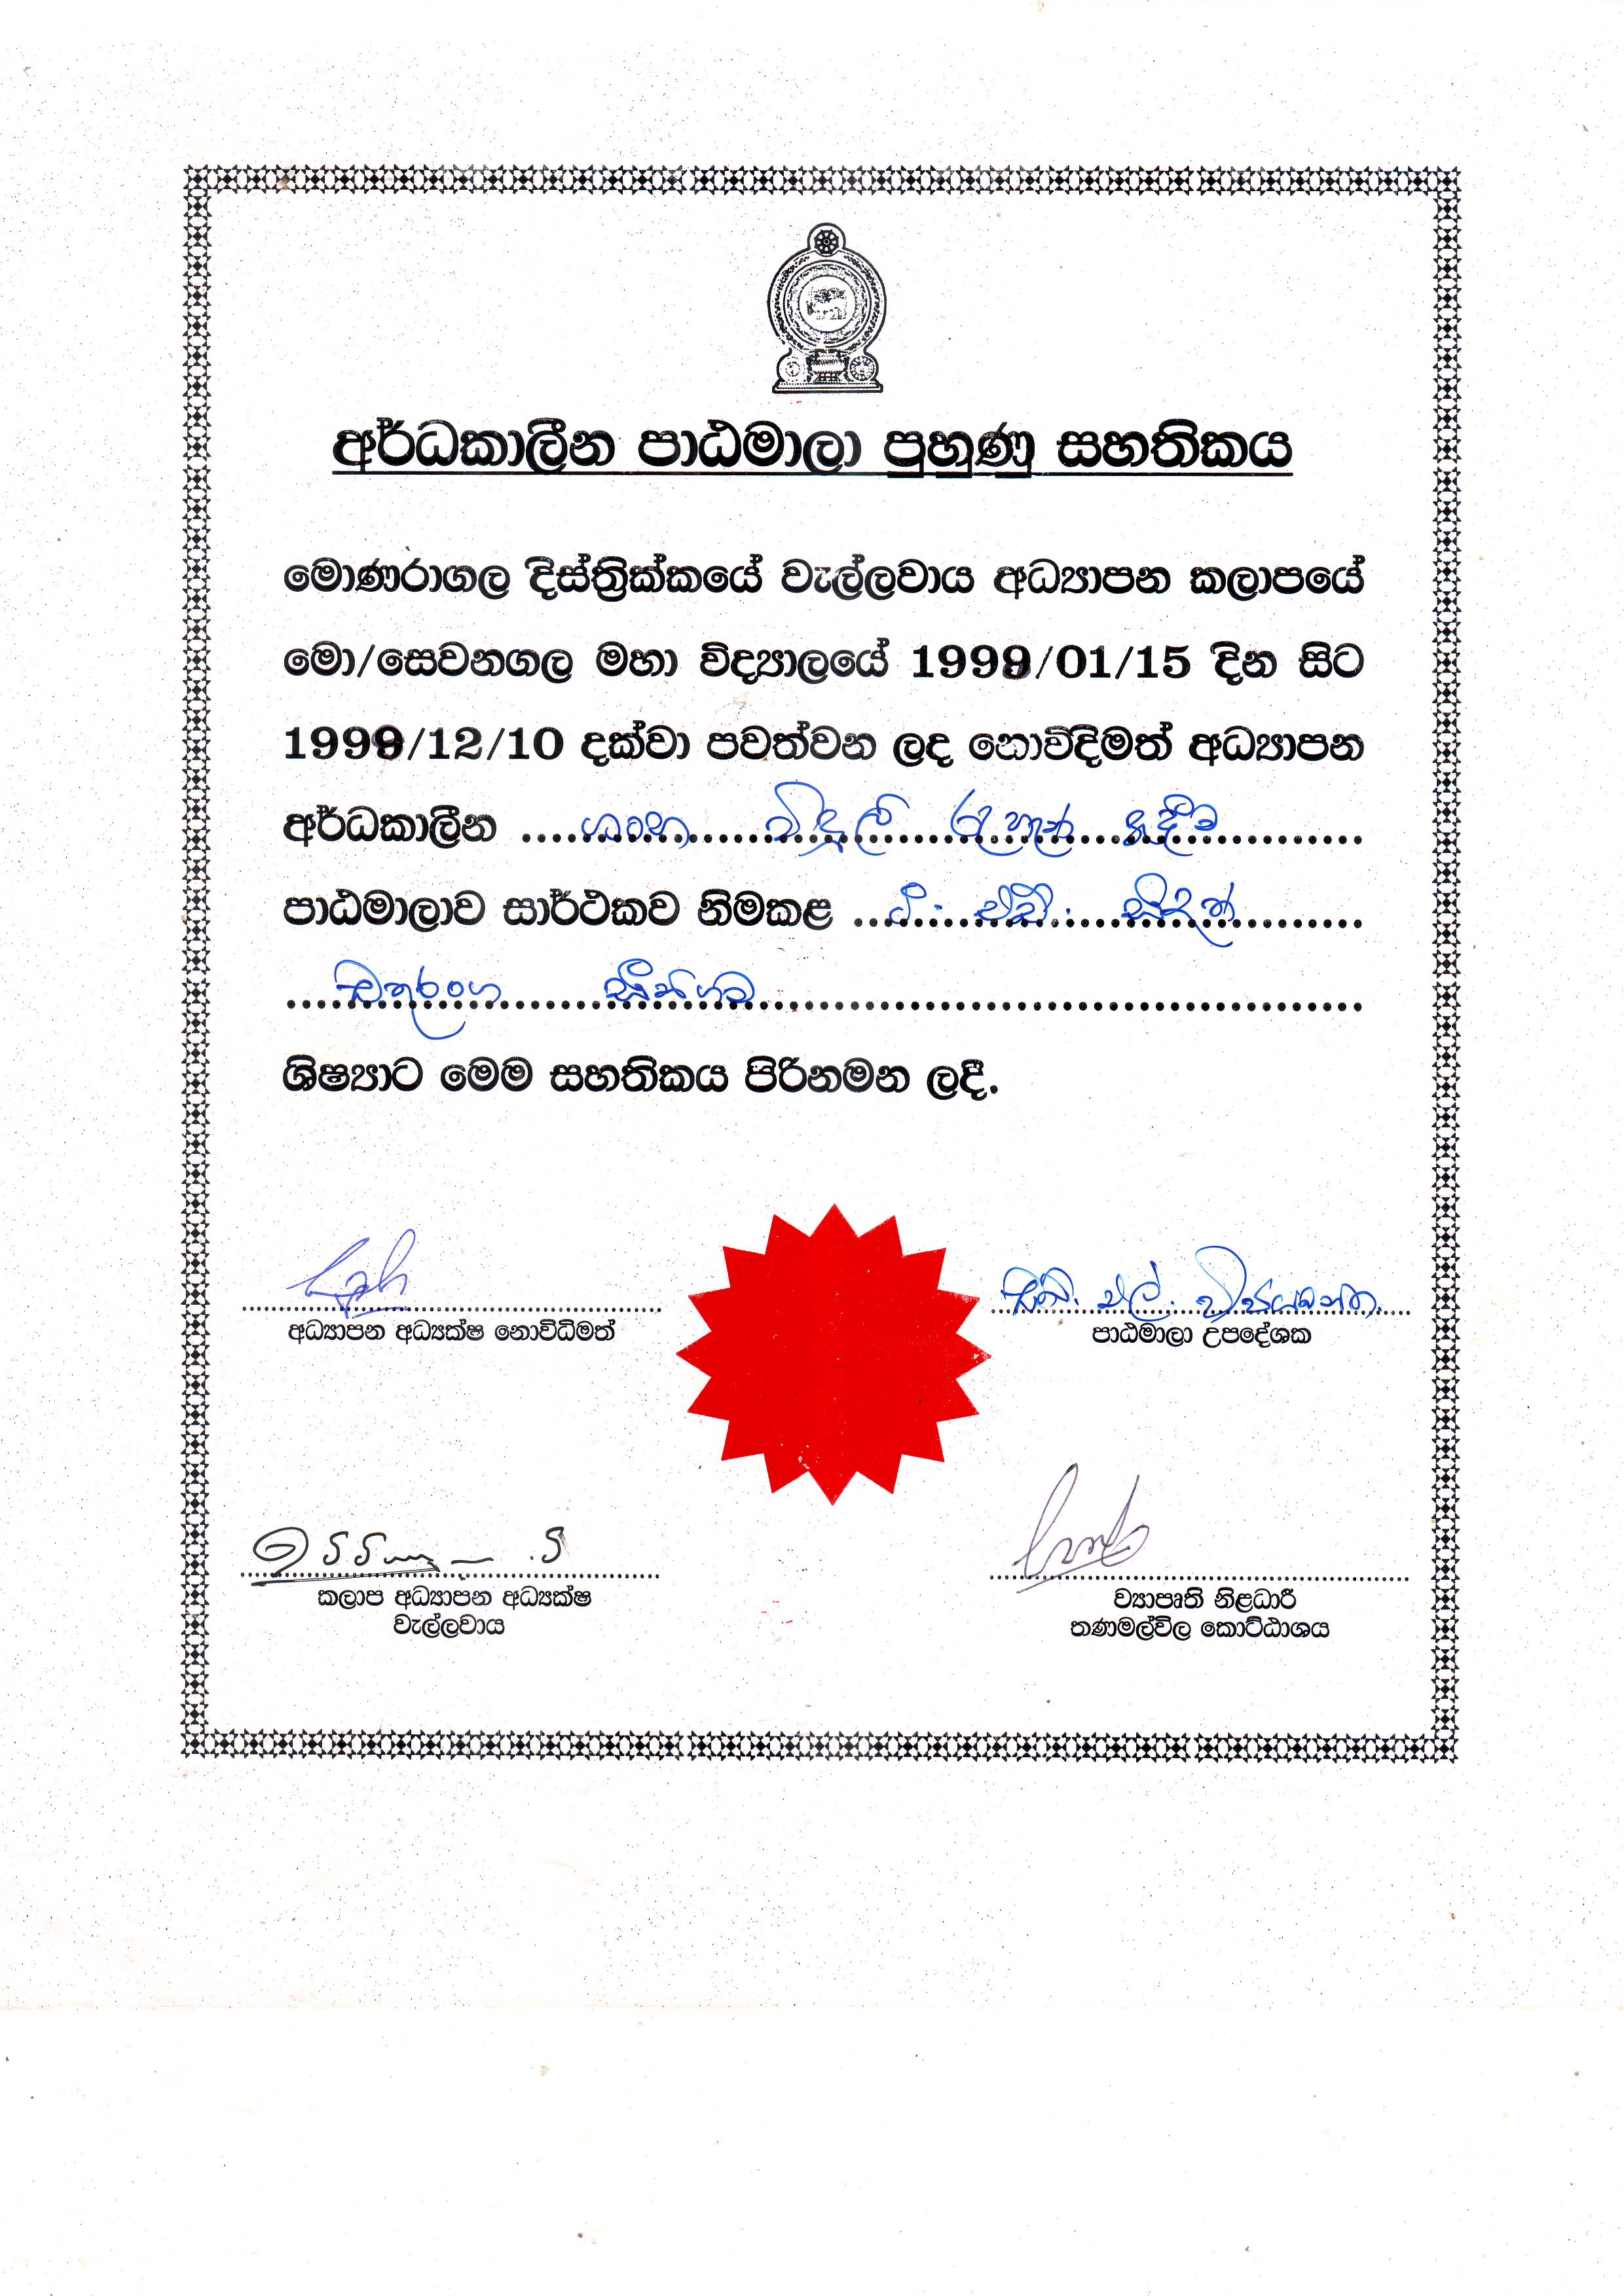 අර්ධකාලීන පාඨමාලා පුහුණු සහතිකය
මොණරාගල දිස්ත්‍රික්කයේ වැල්ලවාය අධ්‍යාපන කලාපයේ
මො/සෙවනගල මහා විද්‍යාලයේ 1999/01/15 දින සිට
1999/12/10 දක්වා පවත්වන ලද නොවිදිමත් අධ්‍යාපන
අර්ධකාලීන ගෘහ විදුලි රැහැන් ඇදීම
පාඨමාලාව සාර්ථකව නිමකළ
චතුරංග
ශිෂ්‍යාට මෙම සහතිකය පිරිනමන ලදී.
අධ්‍යාපන අධ්‍යක්ෂ නොවිධිමත්
පාඨමාලා උපදේශක
කලාප අධ්‍යාපන අධ්‍යක්ෂ
වැල්ලවාය
ව්‍යාපෘති නිළධාරී
තණමල්විල කොට්ඨාශය